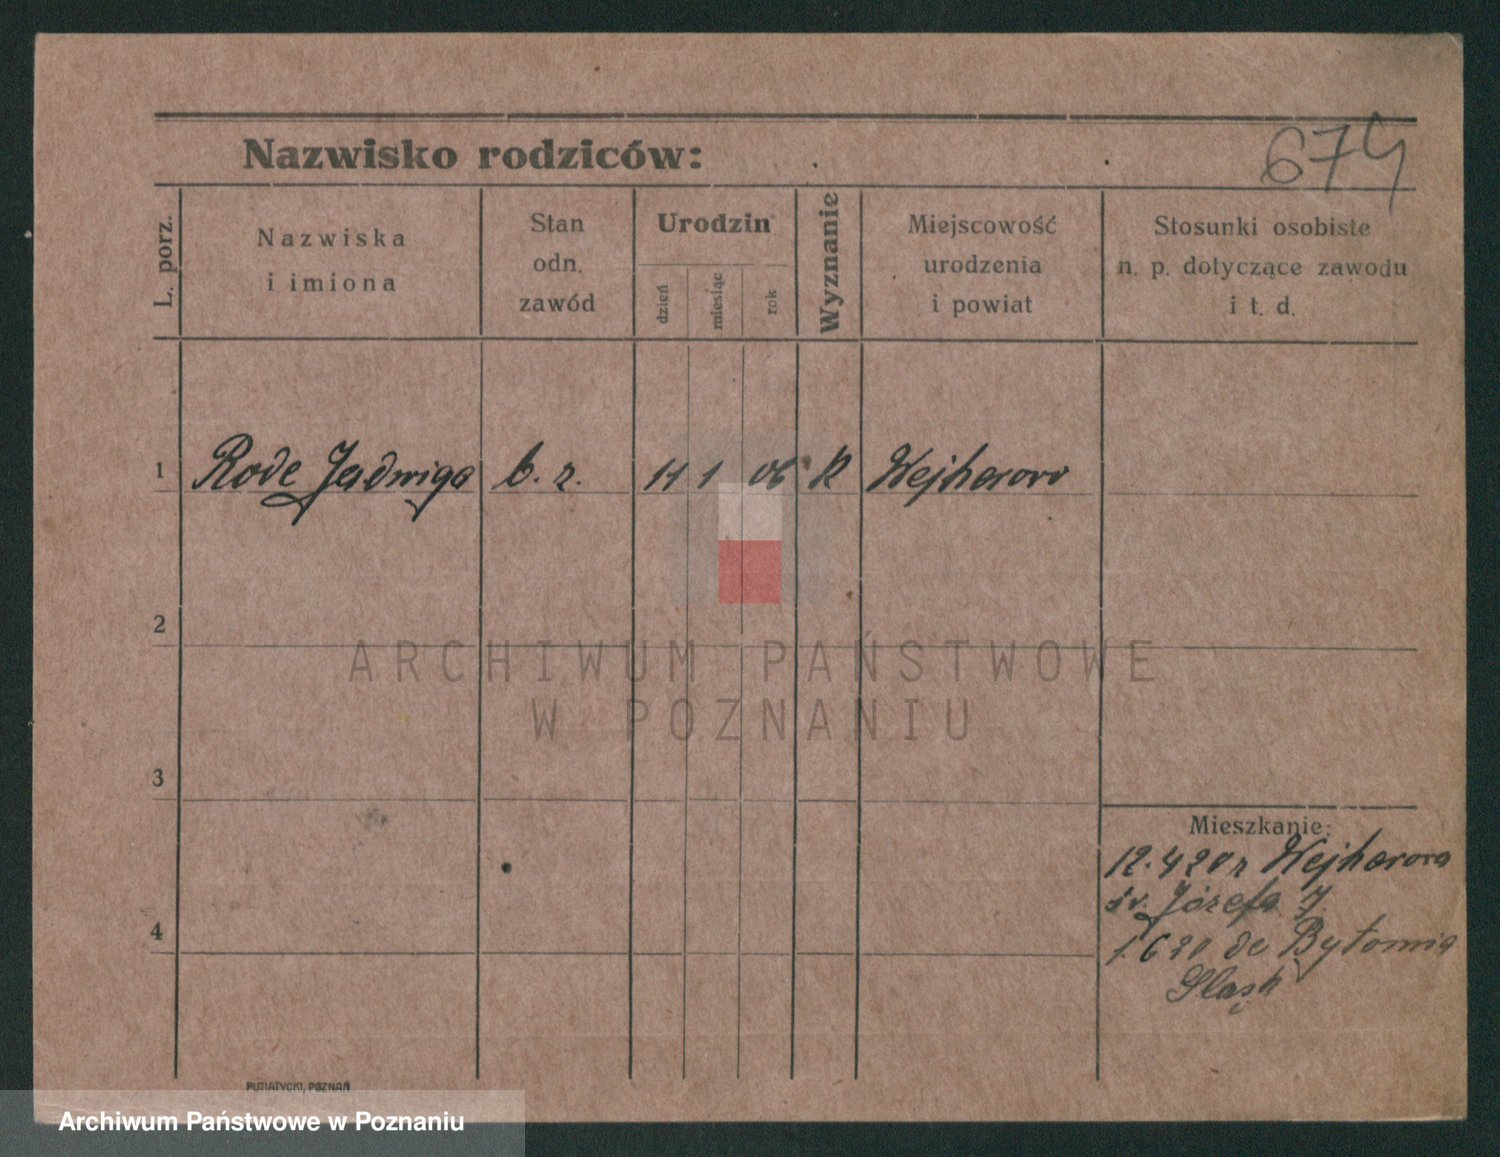 674
Nazwisko rodziców:
L. porz.
Nazwiska
i imiona
Stan
odn.
zawód
Urodzin
dzień
miesiąc
rok
Wyznanie
Miejscowość
urodzenia
i powiat
Stosunki osobiste
n. p. dotyczące zawodu
i t. d.
1 Rode Jadwiga b. z. 11 1 06 K Wejherowo
2
ARCHIWUM PAŃSTWOWE
W POZNANIU
3
Mieszkanie:
12.4 20 z Wejherowa
św. Józefa
4
1 6 20 do Bytomia
Śląsk
PUTIATYCKI, POZNAŃ
Archiwum Państwowe w Poznaniu